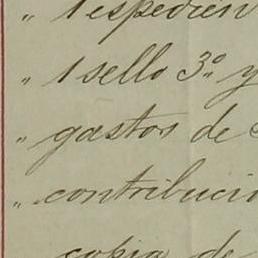 " 1 espedien
" 1 sello 3º y
" gastos de
" contribucio
copia de